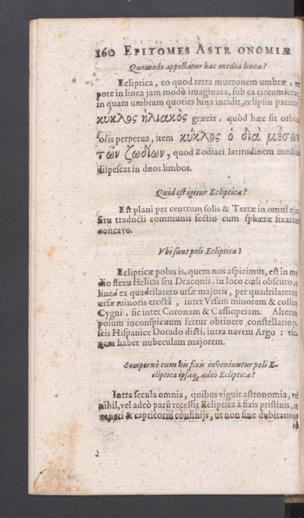 160 EPITOMES ASTRONOMIÆ
Quomodo appellatur hæc media linea?
Ecliptica, eo quod terra mucronem umbræ, ut
pote in linea jam modò imaginata, sub ea circumferat
in quam umbram quoties luna incidit, eclipsin patitur
κύκλος ἡλιακὸς græcis, quòd hæc sit orbita
solis perpetua, item κύκλος ὁ διὰ μέσων
τῶν ζωδίων, quod Zodiaci latitudinem mediam
dispescat in duos limbos.
Quid est igitur Ecliptica?
Est plani per centrum solis & Terræ in omni ejus
situ traducti communis sectio cum sphæra fixarum
concavo.
Vbi sunt poli Eclipticæ?
Eclipticæ polus is, quem nos aspicimus, est in me
dio flexu Helicis seu Draconis, in loco cœli obscuro a
linea ex quadrilatero ursæ majoris, per quadrilaterum
ursæ minoris erectâ, inter Vrsam minorem & collum
Cygni, sic inter Coronam & Cassiopeiam. Alterum
polum inconspicuum fertur obtinere constellatio p
scis Hispanice Dorado dicti, intra navem Argo: vic
nam habet nubeculam majorem.
Sempernè cum his fixis inveniuntur poli E-
cliptica ipsaq́, adeò Ecliptica?
Intra secula omnia, quibus viguit astronomia, vel
nihil, vel adeò parũ recessit Ecliptica à fixis pristinis, ut
cancri & capricorni confiniis, ut non sine dubitatione